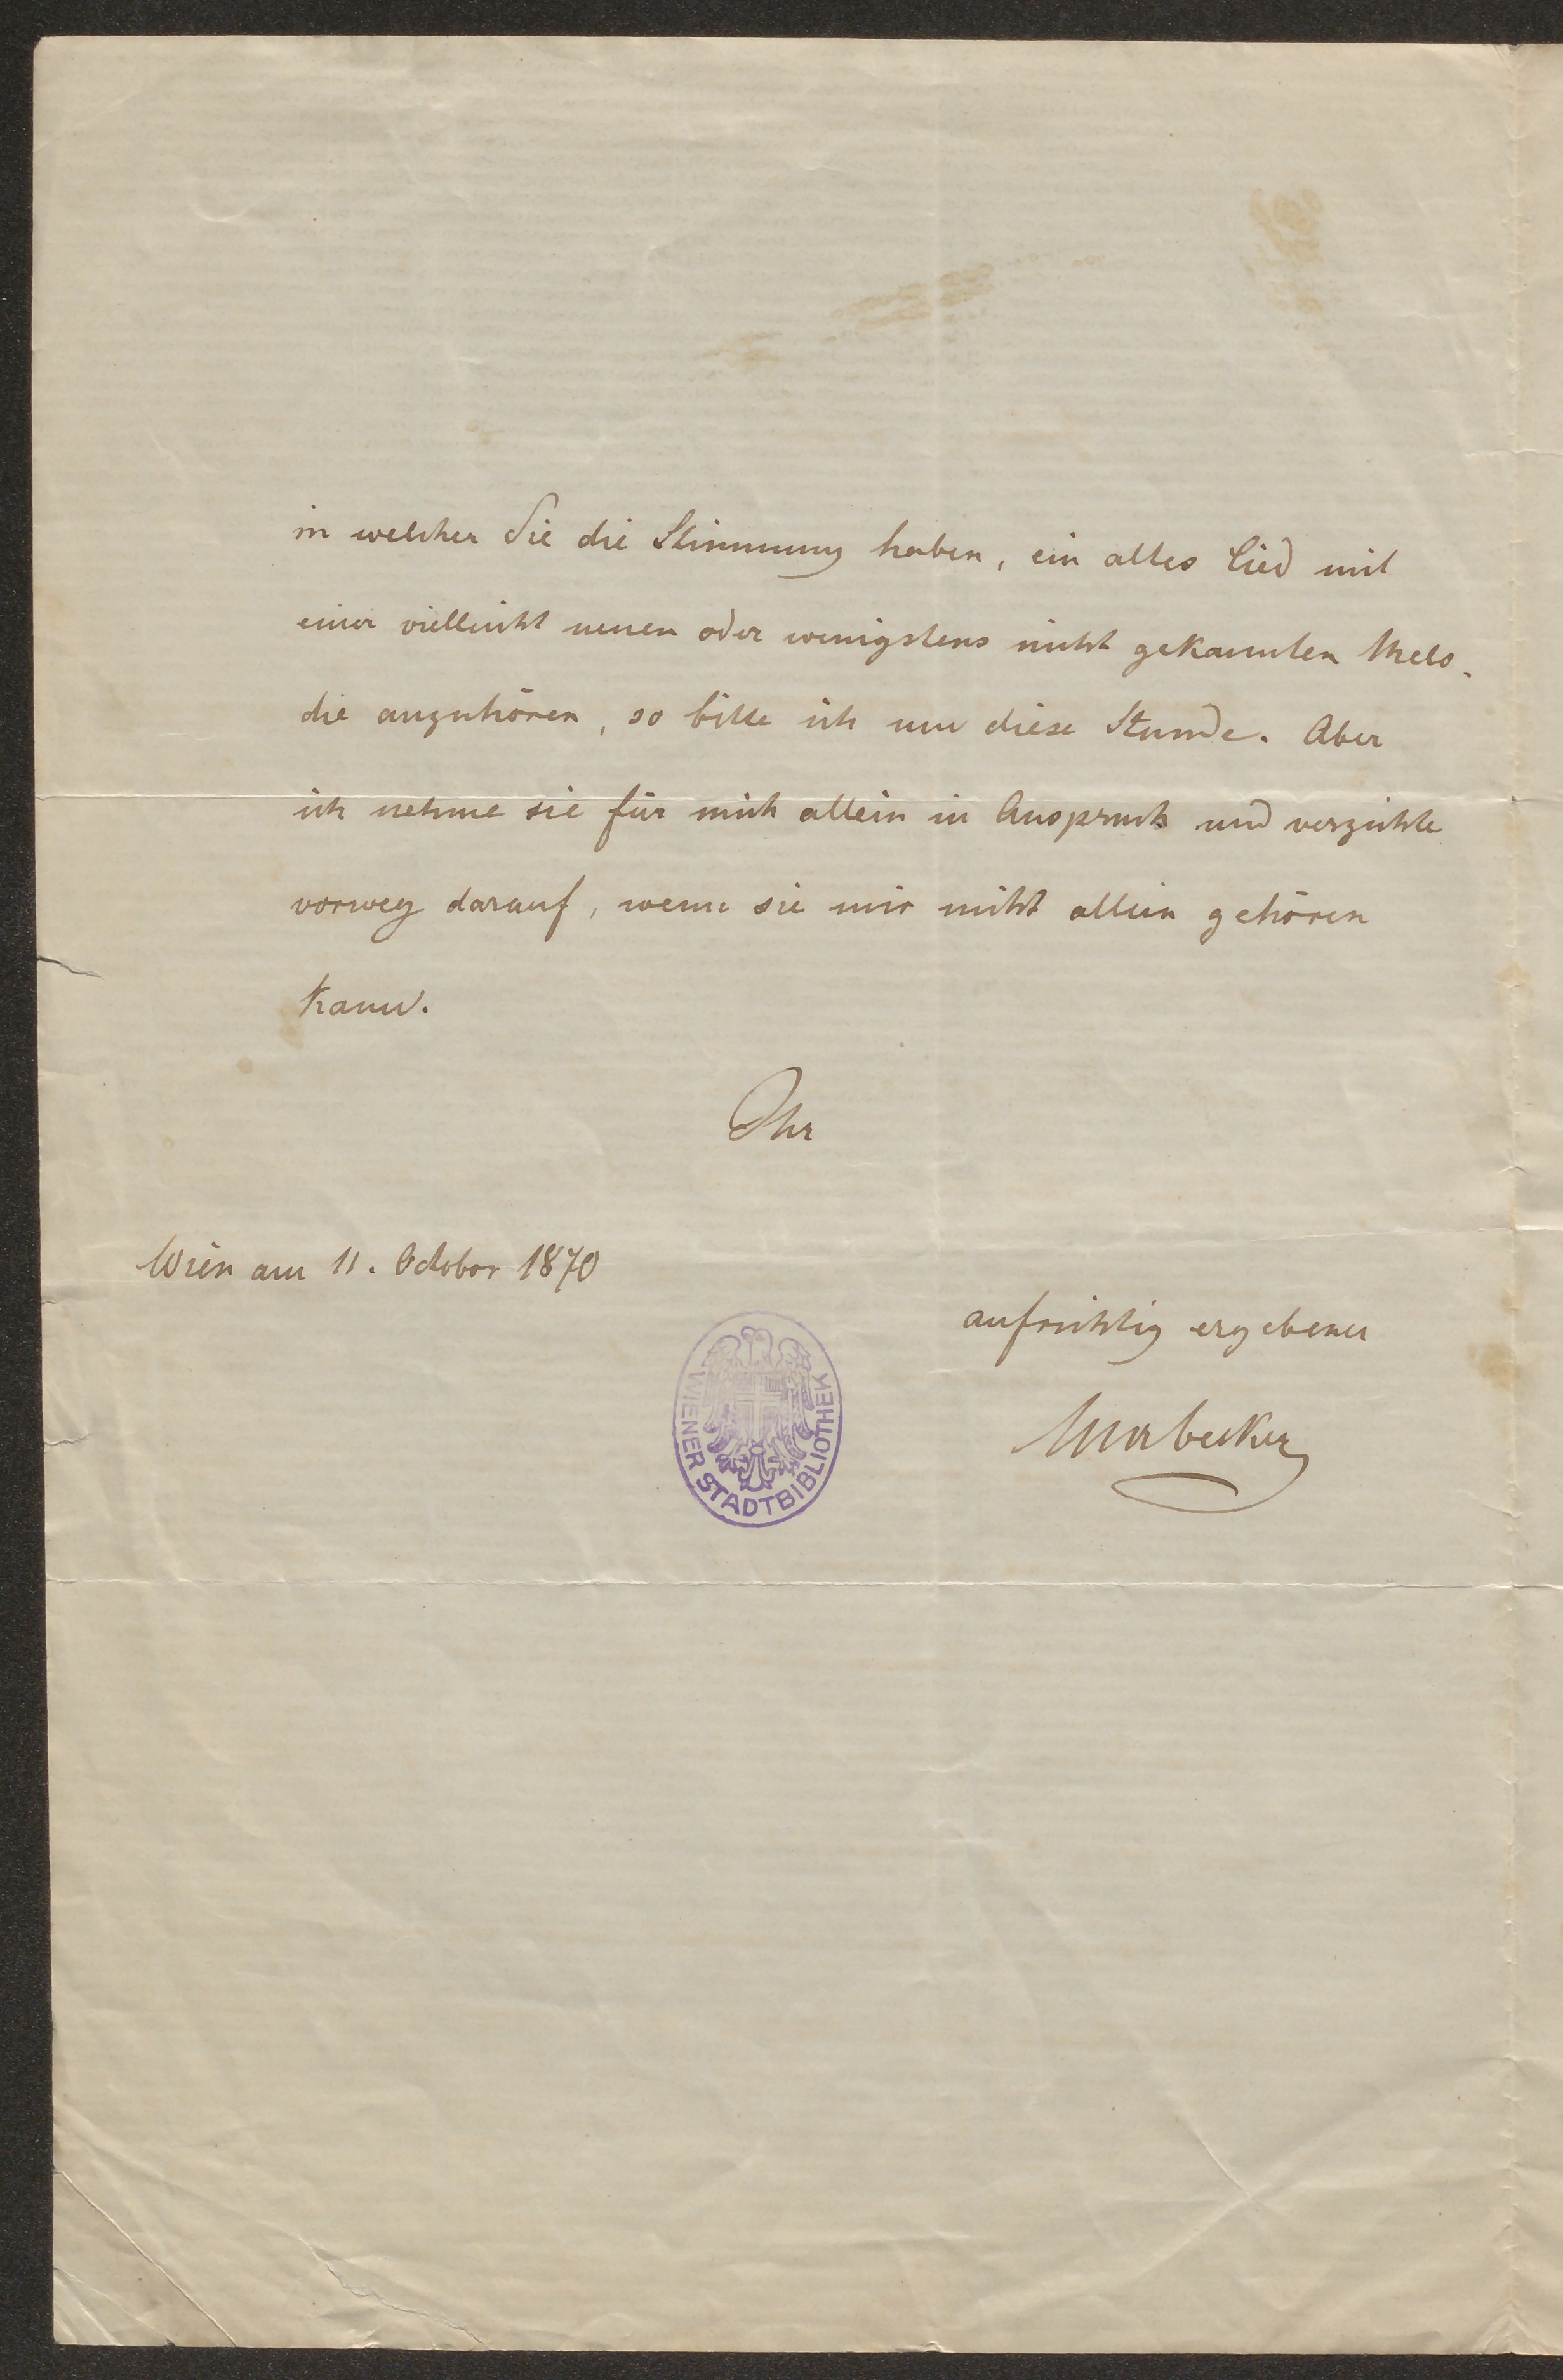 in welcher Sie die Stimmung haben, ein altes Lied mit
einer vielleicht neuen oder wenigstens nicht gekannten Melo-
die anzuhören, so bitte ich um diese Stunde. Aber
ich nehme sie für mich allein in Anspruch und verzichte
vorweg darauf, wenn sie mir nicht allein gehören
kann.
Ihr
Wien am 11. October 1870
aufrichtig ergebener
WIENER STADTBIBLIOTHEK